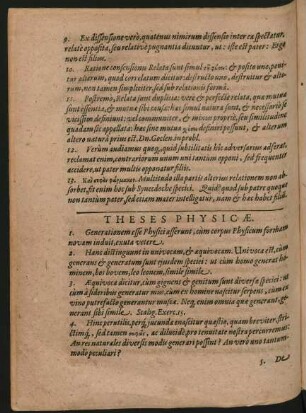 9. Ex dissensione verò, quatenus nimirum dissensio inter ea spectatur,
relatè opposita, seu relativè pugnantia dicuntur, ut: iste est pater: Ergo
non est filius.
10. Ratione consensionis Relata sunt simul & posito uno, poni-
tur alterum, quod correlatum dicitur: destructo uno, destruitur & alte-
rum, non tamen simpliciter, sed sub relationis formâ.
11. Postremò, Relata sunt duplicia: vera & perfectè relata, quæ mutuâ
sunt essentiâ, & mutuæ sibi causæ: hæc simul naturâ sunt, & necessariò se
vicissim definiunt: & minus propriè, seu similitudine
quadam sic appellata: hæc sine mutua definiri possunt, & alterum
altero naturâ prius est. Du. Goclen. in probl.
12. Verùm audiamus quæso, quid subtilitatis hîc adversarius adferat.
reclamat enim, contrariorum unum uni tantùm opponi, sed frequenter
accidere, ut pater multis opponatur filiis.
13. Multitudo illa patris alterius relationem non ab-
sorbet, fit enim hoc sub Synecdoche speciei. Quid? quod sub patre quoque
non tantùm pater, sed etiam mater intelligatur, nam & hæc habet filios.
THESES PHYSICÆ.
1. Generationem esse Physici asserunt, cùm corpus Physicum formam
novam induit, exuta vetere.
2. Hanc distinguunt in univocam, & æquivocam. Univoca est, cùm
generans & generatum sunt ejusdem speciei: ut cùm homo generat ho-
minem, bos bovem, leo leonem, simile simile.
3. Æquivoca dicitur, cùm gignens & genitum sunt diversæ speciei: ut
cùm à sideribus generatur mus, cùm ex homine nascitur serpens, cùm ex
vino putrefacto generantur muscæ. Neq; enim omnia quæ generant, ge-
nerant sibi simile. Scalig. Exerc. 15.
4. Hinc perutilis, perq; jucunda enascitur quæstio, quam breviter, stri-
ctimq; sed tamen ac dilucidè, pro tenuitate nostra percurremus:
An res naturales diversis modis generari possint? An verò uno tantùm
modo peculiari?
5. De